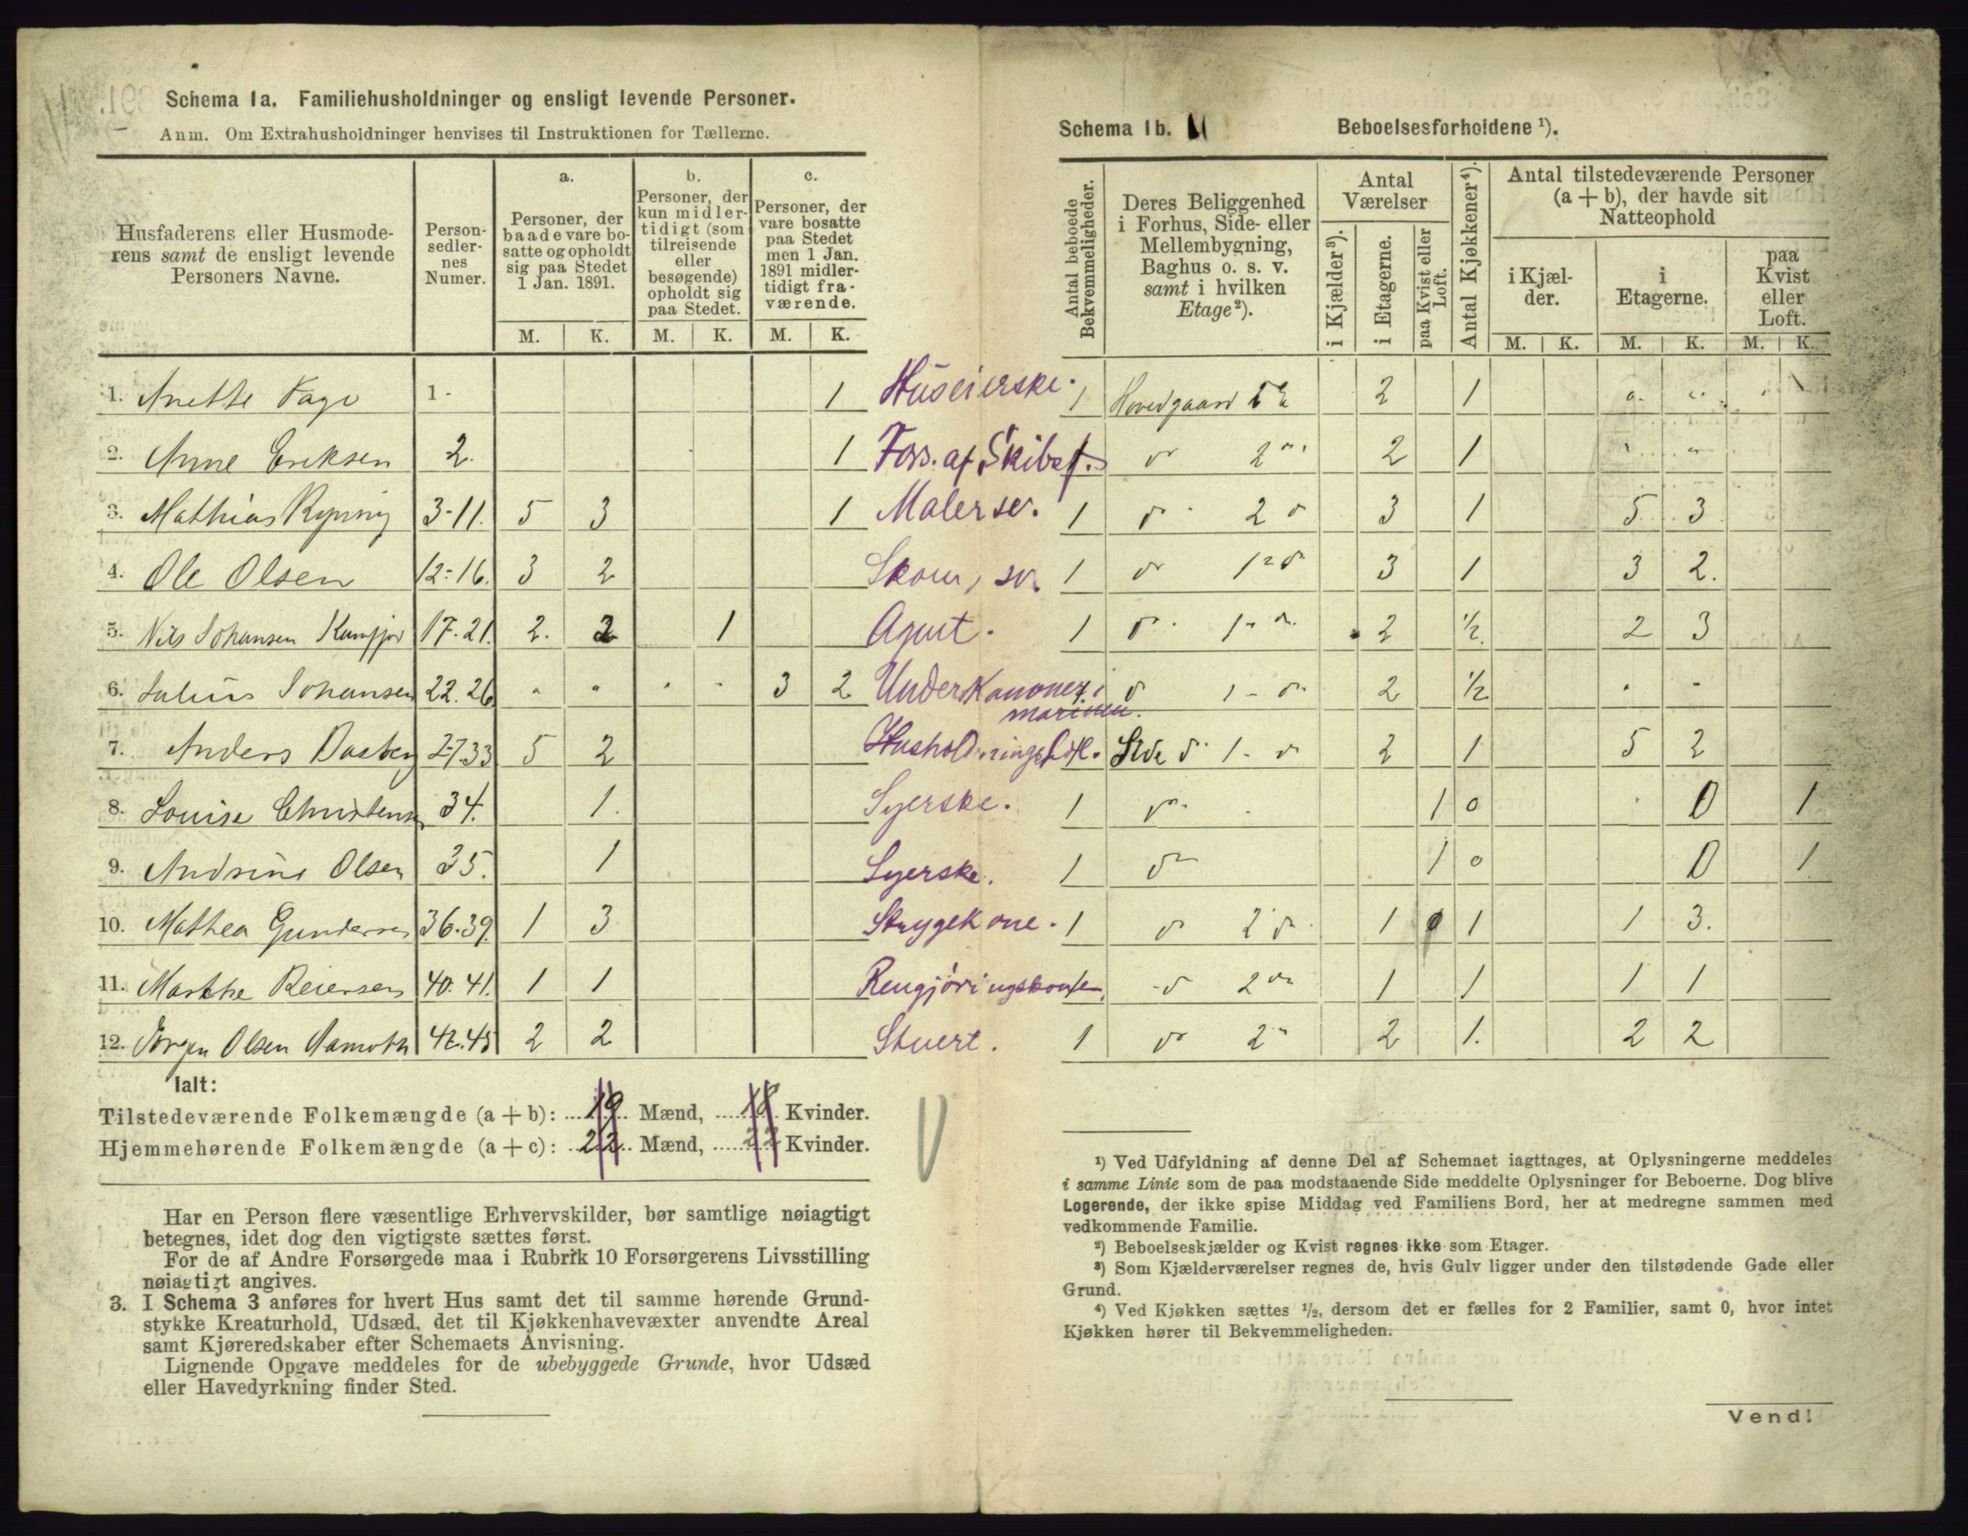 Schema 1a. Familiehusholdninger og ensligt levende Personer.
Anm. Om Extrahusholdninger henvises til Instruktionen for Tællerne.
Husfaderens eller Husmode-
rens samt de ensligt levende
Personers Navne.
Person-
sedler-
nes
Numer.
a.
Personer, der
baade vare bo-
satte og opholdt
sig paa Stedet
1 Jan. 1891.
b.
Personer, der
kun midler-
tidigt (som
tilreisende
eller
besøgende)
opholdt sig
paa Stedet.
c.
Personer, der
vare bosatte
paa Stedet
men 1 Jan.
1891 midler-
tidigt fra-
værende.
M. K. M. K. M. K.
1. Anette Fage 1 - 1 Huseierske.
2. Anne Eriksen 2. 1 Fors. af Skibsf.
3. Mathias Ryning 3-11. 5 3 1 Malersv.
4. Ole Olsen 12-16. 3 2 Skom, sv.
5. Nils Johansen 17-21. 2. 2 1 Agent.
6. Julius Johansen 22.26 " " " " 3 2 Underkanoner i
marinen.
7. Anders Dasberg 27.33 5 2 Husholdningsbstl.
8. Louise Christensen 34. 1. Syerske.
9. Andrine Olsen 35. 1 Syerske.
10. Mathea Gundersen 36.39. 1 3 Strygekone.
11. Marthe Reiersen 40.41. 1 1 Rengjøringskone.
12. Jørgen Olsen 42.45 2 2 Stuert.
Ialt:
Tilstedeværende Folkemængde (a + b): 19 Mænd, 18 Kvinder.
Hjemmehørende Folkemængde (a + c): 22 Mænd, 22 Kvinder.
Har en Person flere væsentlige Erhvervskilder, bør samtlige nøiagtigt
betegnes, idet dog den vigtigste sættes først.
For de af Andre Forsørgede maa i Rubrik 10 Forsørgerens Livsstilling
nøiagtigt angives.
3. I Schema 3 anføres for hvert Hus samt det til samme hørende Grund-
stykke Kreaturhold, Udsæd, det til Kjøkkenhavevæxter anvendte Areal
samt Kjøreredskaber efter Schemaets Anvisning.
Lignende Opgave meddeles for de ubebyggede Grunde, hvor Udsæd
eller Havedyrkning finder Sted.
Schema 1b. Beboelsesforholdene ¹).
Antal beboede
Bekvemmeligheder.
Deres Beliggenhed
i Forhus, Side- eller
Mellembygning,
Baghus o. s. v.
samt i hvilken
Etage²).
Antal
Værelser
i Kjælder³).
i Etagerne.
paa Kvist eller
Loft.
Antal Kjøkkener⁴).
Antal tilstedeværende Personer
(a + b), der havde sit
Natteophold
i Kjæl-
der.
i
Etagerne.
paa
Kvist
eller
Loft.
M. K. M. K. M. K.
1 Hovedgaard 2 1 " "
1 do 2 do 2 1 " "
1 do 2 do 3 1 5 3
1 do 1 do 3 1 3 2.
1 do 1 do 2 ½. 2 3
do 1 - do 2 ½ " "
Side do 1 - do 2 1 5 2
1 do 1 0 0 1
1 do 1 0 0 1
1 do 2 do 1 0 1 1 3.
do 2 do 1 1 1 1
1 do 2 " 2 1. 2 2
¹) Ved Udfyldning af denne Del af Schemaet iagttages, at Oplysningerne meddeles
i samme Linie som de paa modstaaende Side meddelte Oplysninger for Beboerne. Dog blive
Logerende, der ikke spise Middag ved Familiens Bord, her at medregne sammen med
vedkommende Familie.
²) Beboelseskjælder og Kvist regnes ikke som Etager.
³) Som Kjælderværelser regnes de, hvis Gulv ligger under den tilstødende Gade eller
Grund.
⁴) Ved Kjøkken sættes ½, dersom det er fælles for 2 Familier, samt 0, hvor intet
Kjøkken hører til Bekvemmeligheden.
Vend!